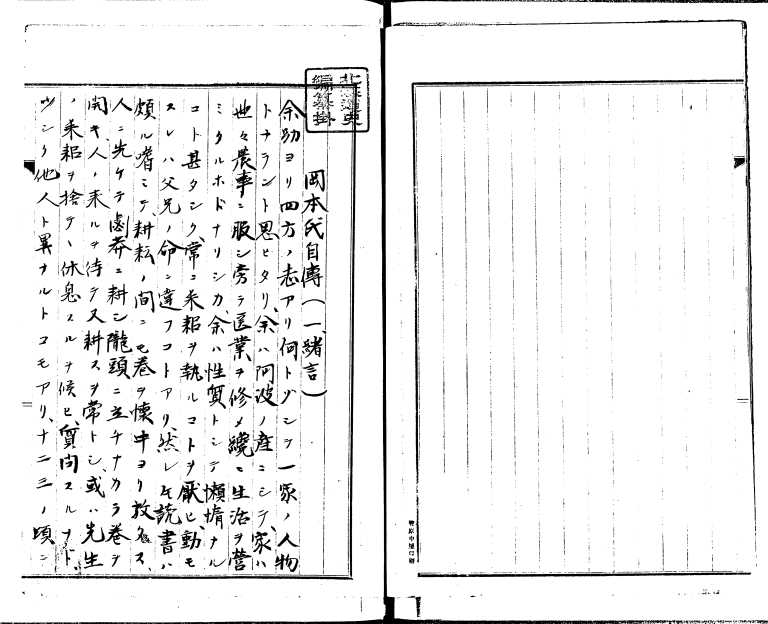 北海道史
編纂掛
岡本氏自傳(一、緒言)
余幼ヨリ四方ノ志アリ何トゾシテ一家ノ人物
トナラント思ヒタリ、余ハ阿波ノ産ニシテ、家ハ
世々農事ニ服シ旁ラ医業ヲ修メ纔ニ生活ヲ營
ミタルホドナリシカ、余ハ性質トシテ懶惰ナル
コト甚タシク、常ニ耒耜ヲ執ルコトヲ厭ヒ、動モ
スレハ父兄ノ命ニ違フコトアリ、然レ𪜈読書ハ
頗ル嗜ミテ、耕耘ノ間ニモ巻ヲ懐中ヨリ放タス、
人ニ先ケテ鹵莽ニ耕シ隴頭ニ立チナカラ巻ヲ
開キ人ノ来ルヲ待テ又耕スヲ常トシ、或ハ先生
ノ耒耜ヲ捨テヽ休息スルヲ候ヒ、質問スルナド、
少シク他人ト異ナルトコモアリ、十二三ノ頃ニ